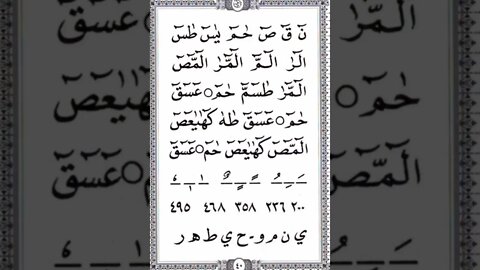 نٓ قٓ صٓ حٰمٓ يٰسٓ طٰسٓ
الٓرٰ الٓمّٓ الٓمّٓرٰ الٓمّٓصٓ
الٓمّٓرٰ طٰسٓمّٓ حٰمٓ ۝ عٓسٓقٓ
حٰمٓ ۝ عٓسٓقٓ طٰهٰ كٓهٰيٰعٓصٓ
الٓمّٓصٓ كٓهٰيٰعٓصٓ حٰمٓ ۝ عٓسٓقٓ
٢٠٠ ٢٣٦ ٣٥٨ ٤٦٨ ٤٩٥
ي ن م و - ح ي ط ه ر
٤٠